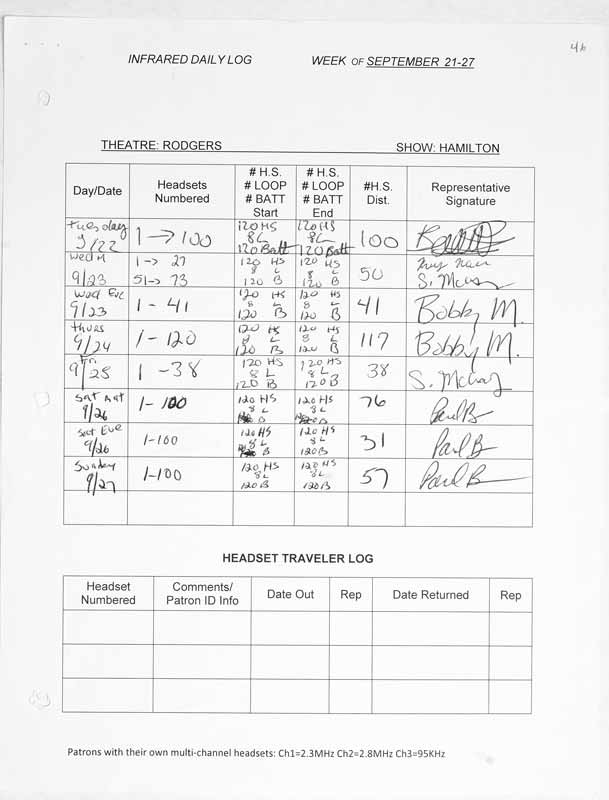 46
INFRARED DAILY LOG WEEK OF SEPTEMBER 21-27
THEATRE: RODGERS SHOW: HAMILTON
Day/Date Headsets Numbered # H.S. # LOOP # BATT Start # H.S. # LOOP # BATT End #H.S. Dist. Representative Signature
Tuesday 9/22 1 → 100 120 HS 8L 120 Batt 120 HS 8L 120 Batt 100
Wed M 9/23 1 -> 27 51 -> 73 120 HS 8 L 120 B 120 HS 8 L 120 B 50
Wed Eve 9/23 1 - 41 120 HS 8 L 120 B 120 HS 8 L 120 B 41 Bobby M.
Thurs 9/24 1 - 120 120 HS 8 L 120 B 120 HS 8 L 120 B 117 Bobby M.
Fri 9/25 1 - 38 120 HS 8 L 120 B 120 HS 8 L 120 B 38
Sat Mat 9/26 1 - 100 120 HS 8 L B 120 HS 8 L B 76 Paul B
Sat Eve 9/26 1-100 120 HS 8 L B 120 HS 8 L 120 B 31 Paul B
Sunday 9/27 1-100 120 HS 8 L 120 B 120 HS 8 L 120 B 57 Paul B
HEADSET TRAVELER LOG
Headset Numbered Comments/ Patron ID Info Date Out Rep Date Returned Rep
Patrons with their own multi-channel headsets: Ch1=2.3MHz Ch2=2.8MHz Ch3=95KHz